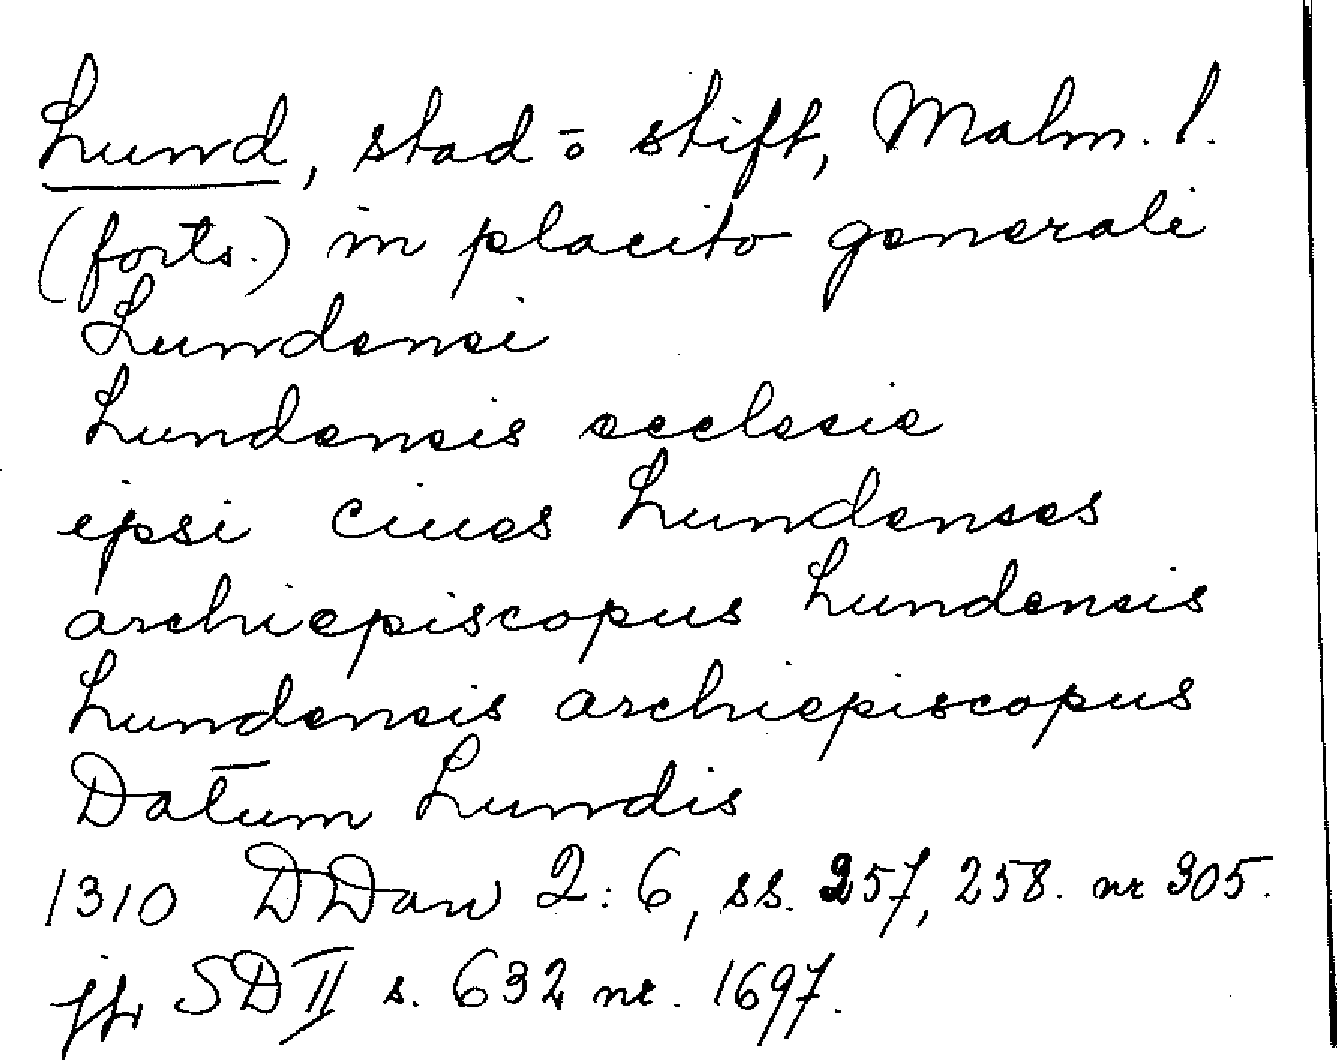 Lund, stad o stift, Malm. l.
(forts.) in placito generali
Lundensi
Lundensis ecclesie
ipsi ciues Lundenses
archiepiscopus Lundensis
Lundensis archiepiscopus
Datum Lundis
1310 DDan 2:6, ss. 257, 258. nr 305.
jfr SD II s. 632 nr. 1697.